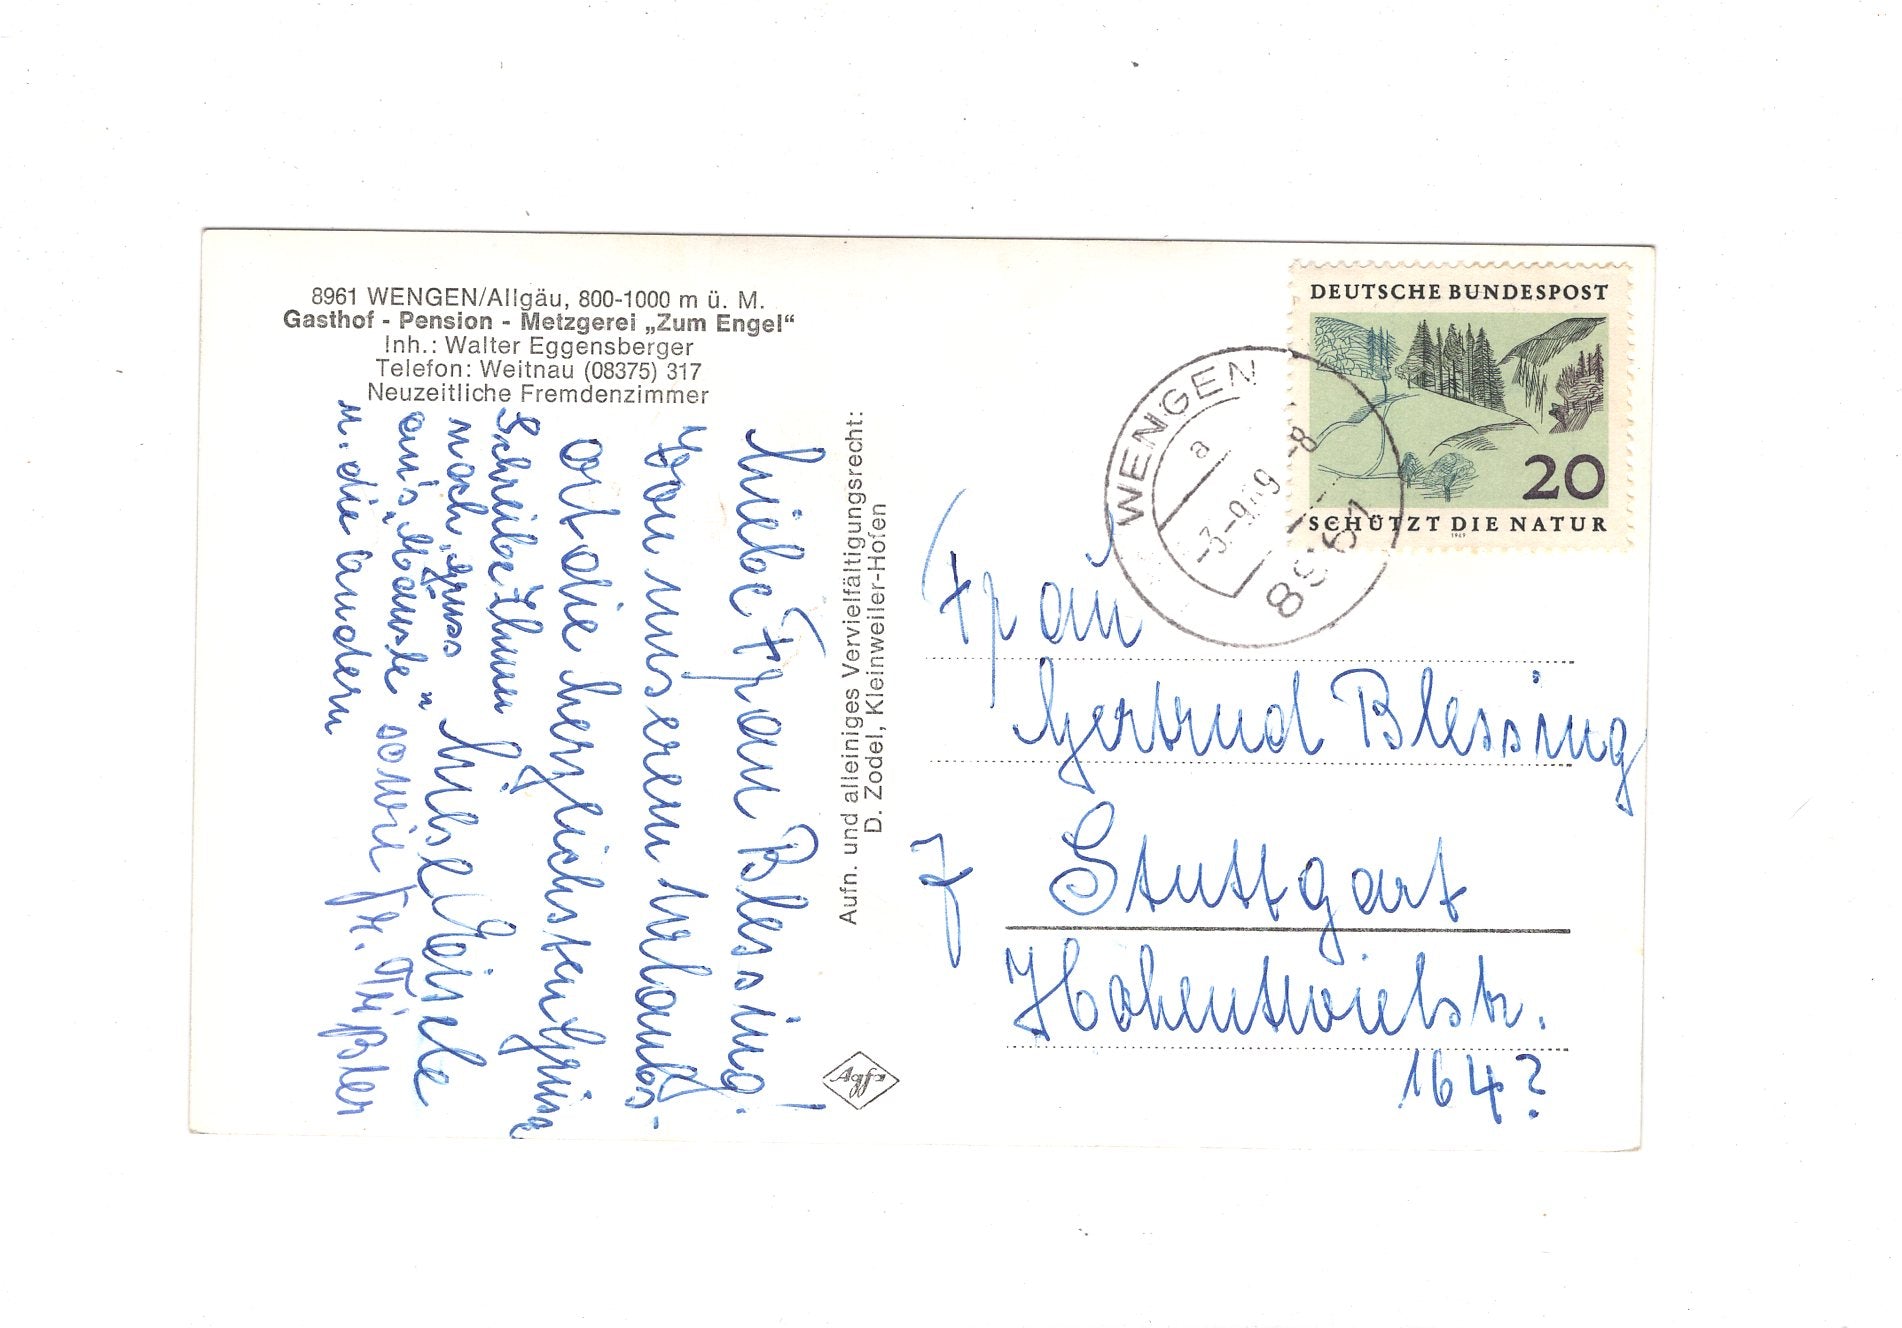 8961 WENGEN/Allgäu, 800-1000 m ü. M.
Gasthof - Pension - Metzgerei „Zum Engel“
Inh.: Walter Eggensberger
Telefon: Weitnau (08375) 317
Neuzeitliche Fremdenzimmer
Liebe Frau Blessing!
Von unserem Urlaubs-
ort die herzlichsten Grüsse
Schreibe Ihnen
noch, Gruss Liesel Meisele
an's sowie Fr.
u. die andern
Aufn. und alleiniges Vervielfältigungsrecht:
D. Zodel, Kleinweiler-Hofen
Agfa
DEUTSCHE BUNDESPOST
20
SCHÜTZT DIE NATUR
1969
WENGEN
a
-3-9.69-8
8961
Frau
Gertrud Blessing
7 Stuttgart
Hohentwielstr.
164?